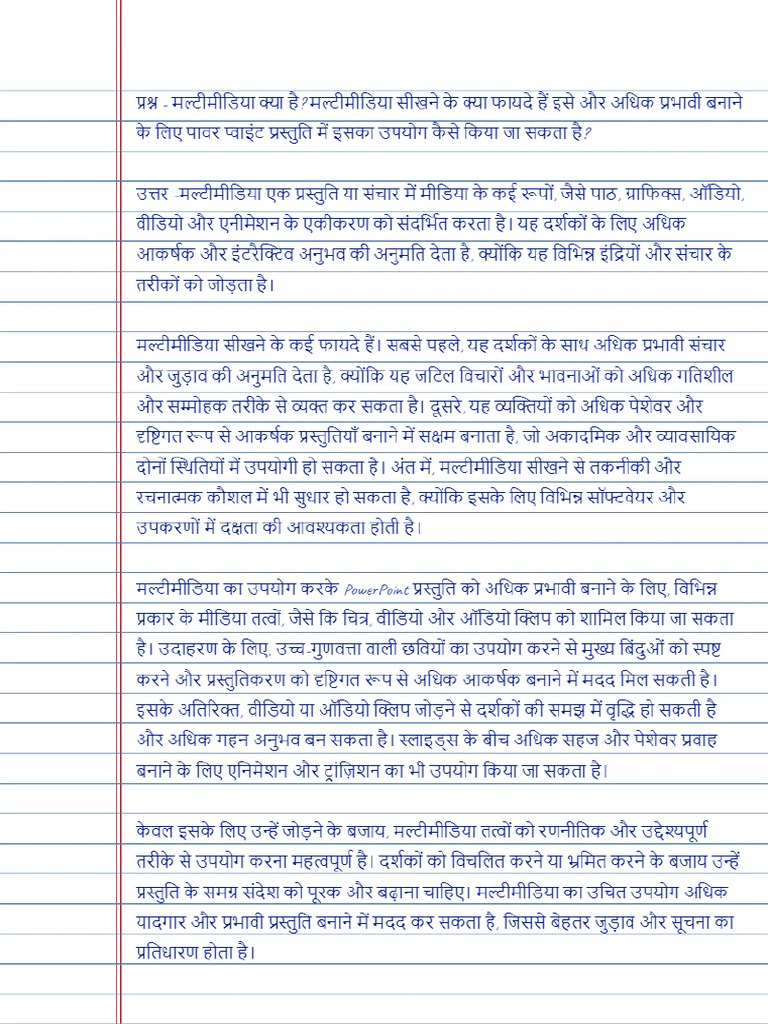 प्रश्न - मल्टीमीडिया क्या है?मल्टीमीडिया सीखने के क्या फायदे हैं इसे और अधिक प्रभावी बनाने
के लिए पावर प्वाइंट प्रस्तुति में इसका उपयोग कैसे किया जा सकता है?
उत्तर -मल्टीमीडिया एक प्रस्तुति या संचार में मीडिया के कई रूपों, जैसे पाठ, ग्राफिक्स, ऑडियो,
वीडियो और एनीमेशन के एकीकरण को संदर्भित करता है। यह दर्शकों के लिए अधिक
आकर्षक और इंटरैक्टिव अनुभव की अनुमति देता है, क्योंकि यह विभिन्न इंद्रियों और संचार के
तरीकों को जोड़ता है।
मल्टीमीडिया सीखने के कई फायदे हैं। सबसे पहले, यह दर्शकों के साथ अधिक प्रभावी संचार
और जुड़ाव की अनुमति देता है, क्योंकि यह जटिल विचारों और भावनाओं को अधिक गतिशील
और सम्मोहक तरीके से व्यक्त कर सकता है। दूसरे, यह व्यक्तियों को अधिक पेशेवर और
दृष्टिगत रूप से आकर्षक प्रस्तुतियाँ बनाने में सक्षम बनाता है, जो अकादमिक और व्यावसायिक
दोनों स्थितियों में उपयोगी हो सकता है। अंत में, मल्टीमीडिया सीखने से तकनीकी और
रचनात्मक कौशल में भी सुधार हो सकता है, क्योंकि इसके लिए विभिन्न सॉफ्टवेयर और
उपकरणों में दक्षता की आवश्यकता होती है।
मल्टीमीडिया का उपयोग करके PowerPoint प्रस्तुति को अधिक प्रभावी बनाने के लिए, विभिन्न
प्रकार के मीडिया तत्वों, जैसे कि चित्र, वीडियो और ऑडियो क्लिप को शामिल किया जा सकता
है। उदाहरण के लिए, उच्च-गुणवत्ता वाली छवियों का उपयोग करने से मुख्य बिंदुओं को स्पष्ट
करने और प्रस्तुतिकरण को दृष्टिगत रूप से अधिक आकर्षक बनाने में मदद मिल सकती है।
इसके अतिरिक्त, वीडियो या ऑडियो क्लिप जोड़ने से दर्शकों की समझ में वृद्धि हो सकती है
और अधिक गहन अनुभव बन सकता है। स्लाइड्स के बीच अधिक सहज और पेशेवर प्रवाह
बनाने के लिए एनिमेशन और ट्रांज़िशन का भी उपयोग किया जा सकता है।
केवल इसके लिए उन्हें जोड़ने के बजाय, मल्टीमीडिया तत्वों को रणनीतिक और उद्देश्यपूर्ण
तरीके से उपयोग करना महत्वपूर्ण है। दर्शकों को विचलित करने या भ्रमित करने के बजाय उन्हें
प्रस्तुति के समग्र संदेश को पूरक और बढ़ाना चाहिए। मल्टीमीडिया का उचित उपयोग अधिक
यादगार और प्रभावी प्रस्तुति बनाने में मदद कर सकता है, जिससे बेहतर जुड़ाव और सूचना का
प्रतिधारण होता है।